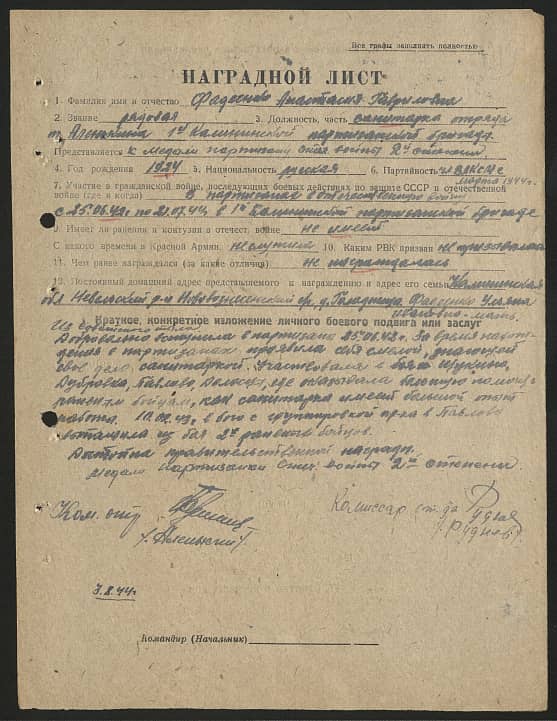 Все графы заполнять полностью
НАГРАДНОЙ ЛИСТ
1. Фамилия имя и отчество Фадеенко Анастасия Гавриловна
2. Звание рядовая 3. Должность, часть санитарка отряда
1й Калининской партизанской бригады
Представляется к медали партизану отеч. войны 2й степени
4. Год рождения 1924 5. Национальность русская 6. Партийность чл. ВЛКСМ с
марта 1944г.
7. Участие в гражданской войне, последующих боевых действиях по защите СССР и отечественной
войне (где и когда) в партизанах в отечественную войну
с 25.06.42г. по 21.07.44г. в 1й Калининской партизанской бригаде
8. Имеет ли ранения и контузии в отечест. войне не имеет
С какого времени в Красной Армии не служила 10. Каким РВК призван не призывалась
11. Чем ранее награждался (за какие отличия) не награждалась
12. Постоянный домашний адрес представляемого к награждению и адрес его семьи Калининская
обл Невельский р-н Фадеенко Ульяна
Ивановна - мать.
Краткое, конкретное изложение личного боевого подвига или заслуг
Добровольно вступила в партизаны 25.06.43г. За время нахож-
дения в партизанах проявила себя смелой, знающей
свое дело санитаркой. Участвовала в боях Щукино,
Дубровка, Павлово, где оказывала помощь
раненым бойцам, как санитарка имеет большой опыт
работы. 10.02.43г. в бою с группировкой пр-ка в Павлово
вытащила из боя 2х раненых бойцов.
Достойна правительственной награды
медали Партизанки Отеч. войны 2й степени
Ком. отр.
Комиссар отряда
Руднев
Командир (Начальник)